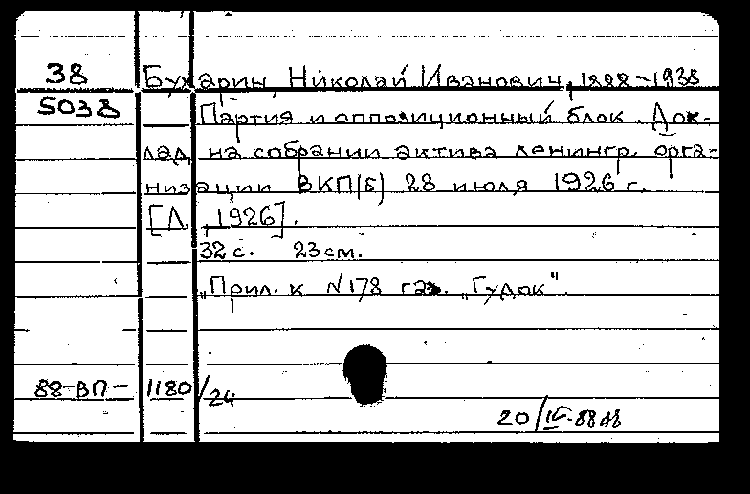 38 Бухарин, Николай Иванович, 1888-1938
5038 Партия и оппозиционный блок. Док-
лад на собрании актива ленингр. орга-
низации ВКП(б) 28 июля 1926 г.
[Л., 1926].
32 с. 23 см.
"Прил. к N178 газ. „Гудок".
88-ВП- 1180/24
20/IV-88